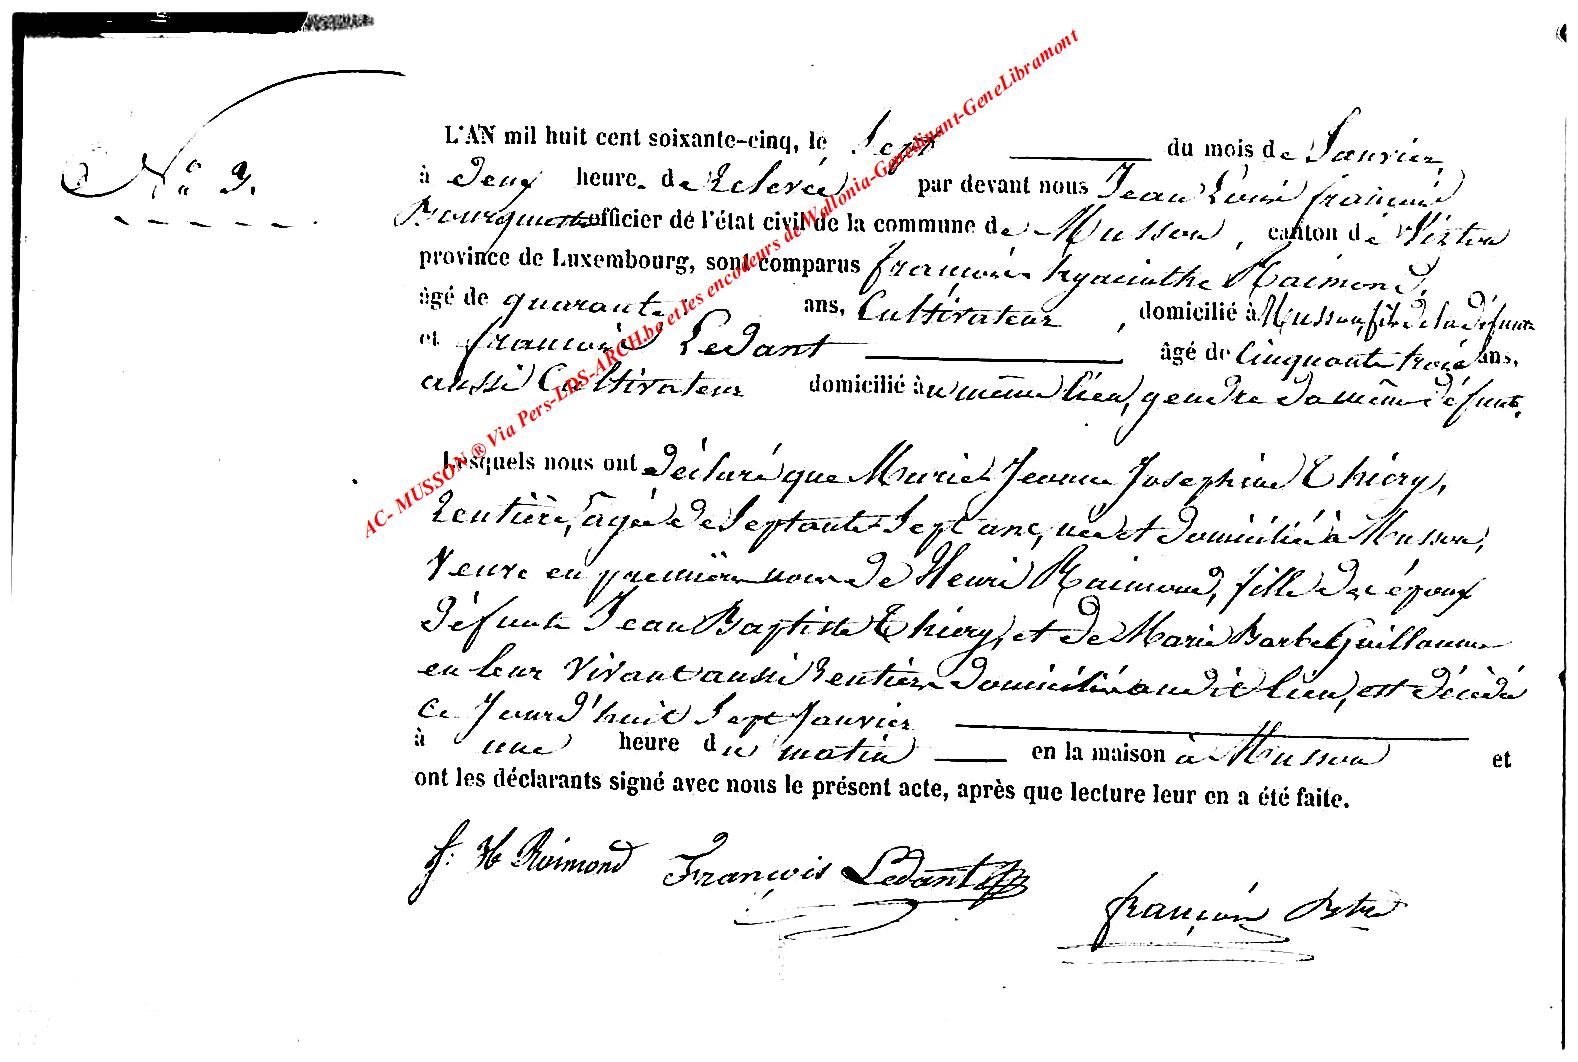 L'AN mil huit cent soixante-cinq, le Sept du mois de Janvier
N.o 3.
à deux heure. de Relevée par devant nous Jean Louis françois
Bourguignon officier de l'état civil de la commune de Musson, canton de Virton
province de Luxembourg, sont comparus françois hyacinthe Raimond,
âgé de quarante ans, Cultivateur, domicilié à Musson, fils de la défunte
et françois Ledant âgé de Cinquante trois ans,
aussi Cultivateur domicilié au même lieu, gendre de la même défunte.
Lesquels nous ont déclaré que Marie Jeanne Josephine Thiery,
Rentière, agée de Septante Sept ans, née et domiciliée à Musson,
Veuve en premières noces de Henri Raimond, fille des époux
défunts Jean Baptiste Thiery, et de Marie Barbe Guillaume
en leur vivant aussi Rentiers domiciliés audit lieu, est décédée
ce Jourd'huit Sept Janvier
à une heure du matin en la maison à Musson et
ont les déclarants signé avec nous le présent acte, après que lecture leur en a été faite.
f: H Raimond François Ledant
françois
AC- MUSSON ® Via Pers-LDS-ARCH.be et les encodeurs de Wallonia-Genedinant-GeneLibramont